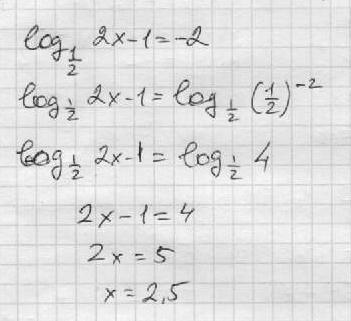 log_{1/2} 2x-1=-2
log_{1/2} 2x-1 = log_{1/2} (1/2)^{-2}
log_{1/2} 2x-1 = log_{1/2} 4
2x-1=4
2x=5
x=2,5